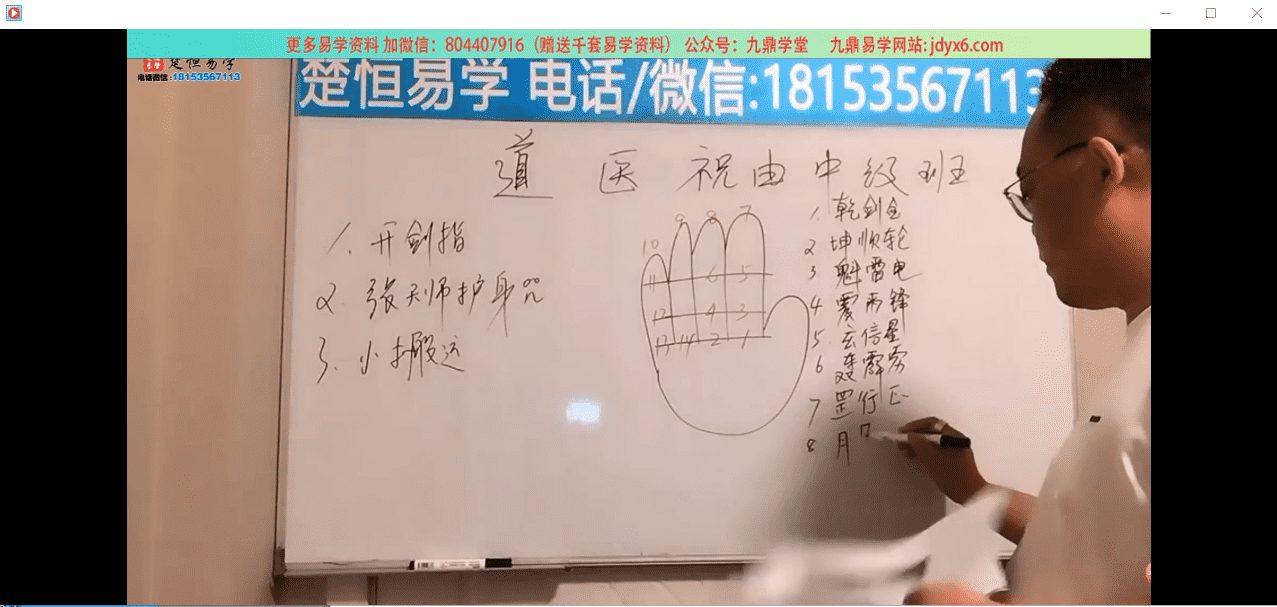 更多易学资料 加微信：804407916（赠送千套易学资料） 公众号：九鼎学堂 九鼎易学网站: jdyx6.com
楚恒易学
电话微信:18153567113
楚恒易学 电话/微信:18153567113
道医祝由中级班
1. 开剑指
2. 张天师护身咒
3. 小搬运
9 8 7
10
11 6 5
12 4 3
13 14 2 1
1. 乾剑金
2 坤顺轮
3 魁雷电
4 震雨锋
5. 玄信星
6 轰霹雳
7 罡行正
8 月